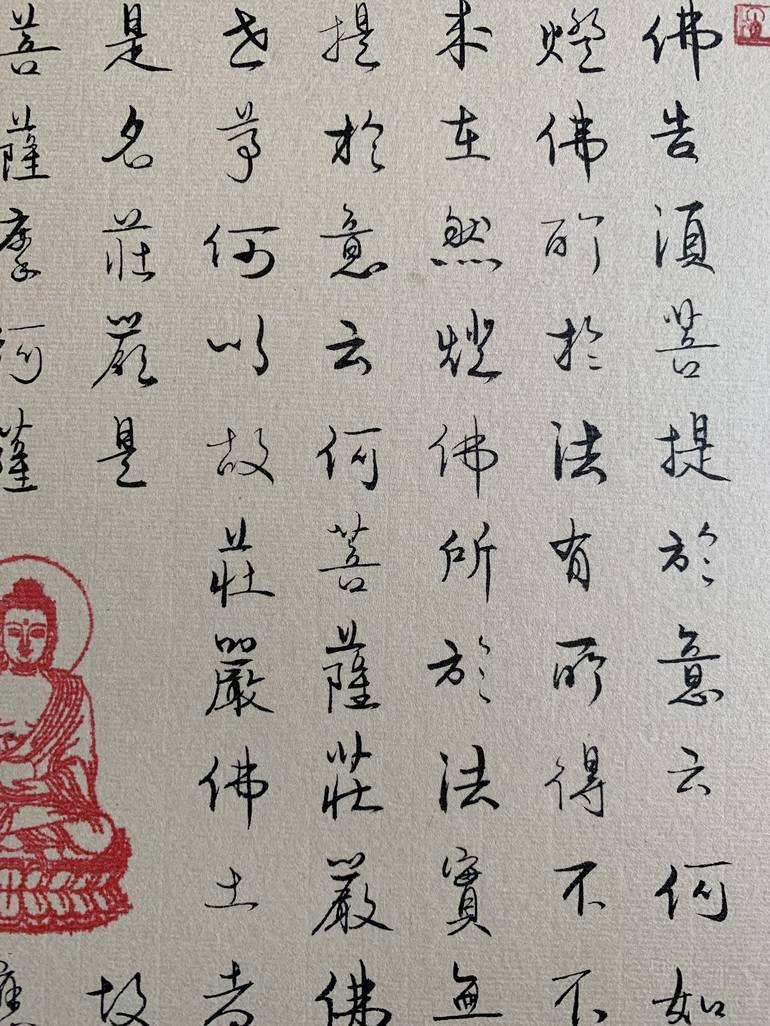 佛告須菩提於意云何如
燈佛所於法有所得不不
來在然燈佛所於法實無
提於意云何菩薩莊嚴佛
世尊何以故莊嚴佛土者
是名莊嚴是故
菩薩摩訶薩應